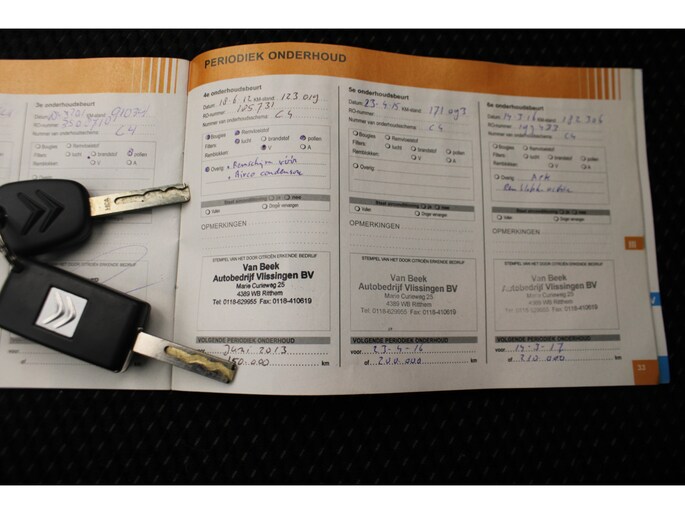 PERIODIEK ONDERHOUD
3e onderhoudsbeurt
Nummer van onderhoudsschema
C4
pollen
V A
4e onderhoudsbeurt
Datum: 18-6-12 KM-stand: 123.019
RO-nummer: 105.731
Nummer van onderhoudsschema C4
Bougies Remvloeistof
Filters: lucht brandstof pollen
Remblokken: V A
Overig: Remschijven vóór
Airco condensor
Staat airconditioning ja nee
Vullen Drogen vervangen
OPMERKINGEN
STEMPEL VAN HET DOOR CITROËN ERKENDE BEDRIJF
Van Beek
Autobedrijf Vlissingen BV
Marie Curieweg 25
4389 WB Ritthem
Tel: 0118-629955 Fax: 0118-410619
VOLGENDE PERIODIEK ONDERHOUD
voor Juni 2013
of 150.000 km
5e onderhoudsbeurt
Datum: 23-4-15 KM-stand: 171.093
RO-nummer:
Nummer van onderhoudsschema C4
Bougies Remvloeistof
Filters: lucht brandstof pollen
Remblokken: V A
Overig:
OPMERKINGEN
STEMPEL VAN HET DOOR CITROËN ERKENDE BEDRIJF
Van Beek
Autobedrijf Vlissingen BV
Marie Curieweg 25
4389 WB Ritthem
Tel: 0118-629955 Fax: 0118-410619
VOLGENDE PERIODIEK ONDERHOUD
voor 23-4-16
of 200.000 km
6e onderhoudsbeurt
Datum: 14-3-16 KM-stand: 182.306
RO-nummer:
Nummer van onderhoudsschema C4
Bougies Remvloeistof
Filters: lucht brandstof pollen
Remblokken: V A
Overig: APK
OPMERKINGEN
STEMPEL VAN HET DOOR CITROËN ERKENDE BEDRIJF
Van Beek
Autobedrijf Vlissingen BV
Marie Curieweg 25
4389 WB Ritthem
Tel: 0118-629955 Fax: 0118-410619
VOLGENDE PERIODIEK ONDERHOUD
voor 14-3-17
of 210.000 km
33